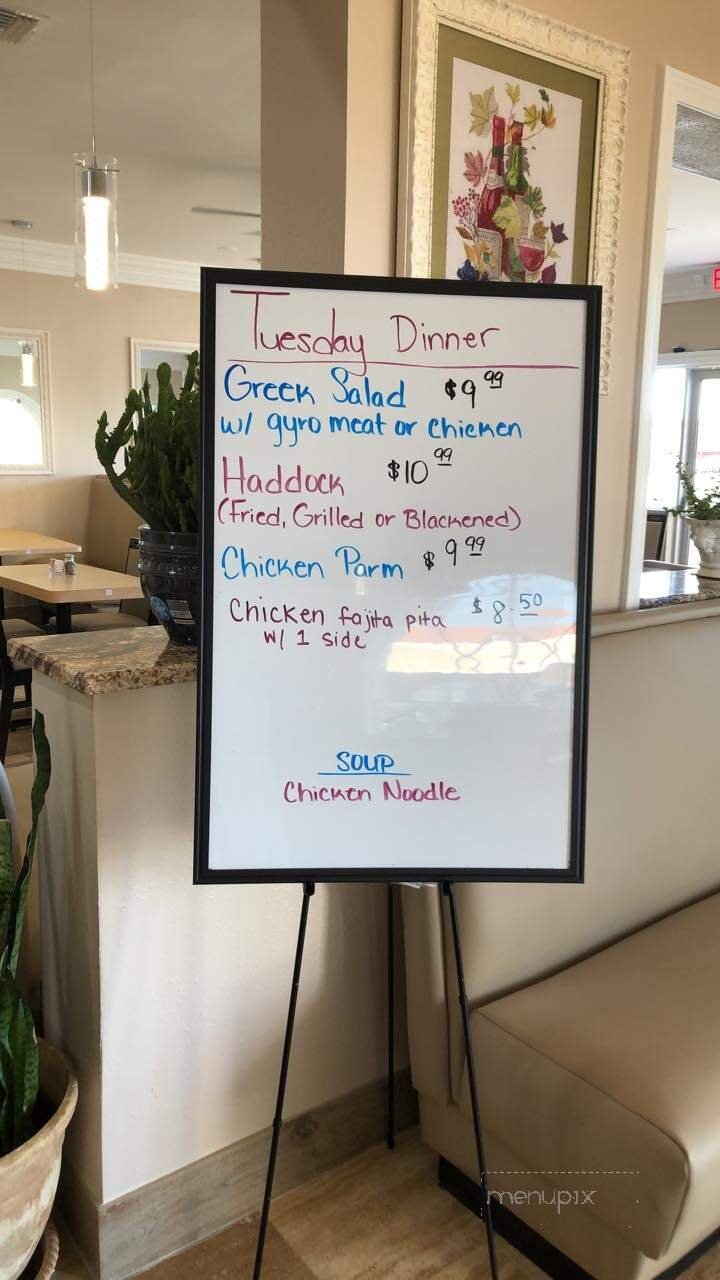 Tuesday Dinner
Greek Salad $9.99
w/ gyro meat or Chicken
Haddock $10.99
(Fried, Grilled or Blackened)
Chicken Parm $9.99
Chicken fajita pita $8.50
w/ 1 side
SOUP
Chicken Noodle
menupix